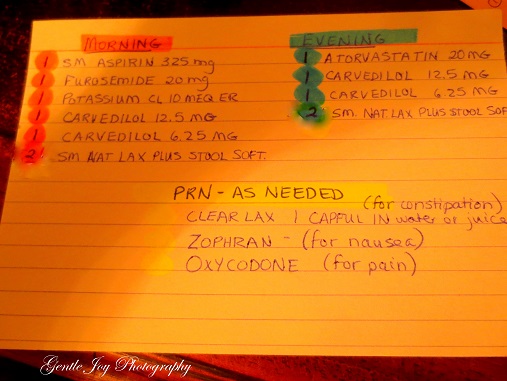 MORNING
1 SM. ASPIRIN 325 mg
1 FUROSEMIDE 20 mg
1 POTASSIUM CL 10 MEQ ER
1 CARVEDILOL 12.5 MG
1 CARVEDILOL 6.25 MG
2 SM. NAT. LAX PLUS STOOL SOFT.
EVENING
1 ATORVASTATIN 20 MG
1 CARVEDILOL 12.5 MG
1 CARVEDILOL 6.25 MG
2 SM. NAT. LAX PLUS STOOL SOF
PRN - AS NEEDED
(for constipation)
CLEAR LAX 1 CAPFUL IN water or juice
ZOPHRAN - (for nausea)
OXYCODONE (for pain)
Gentle Joy Photography